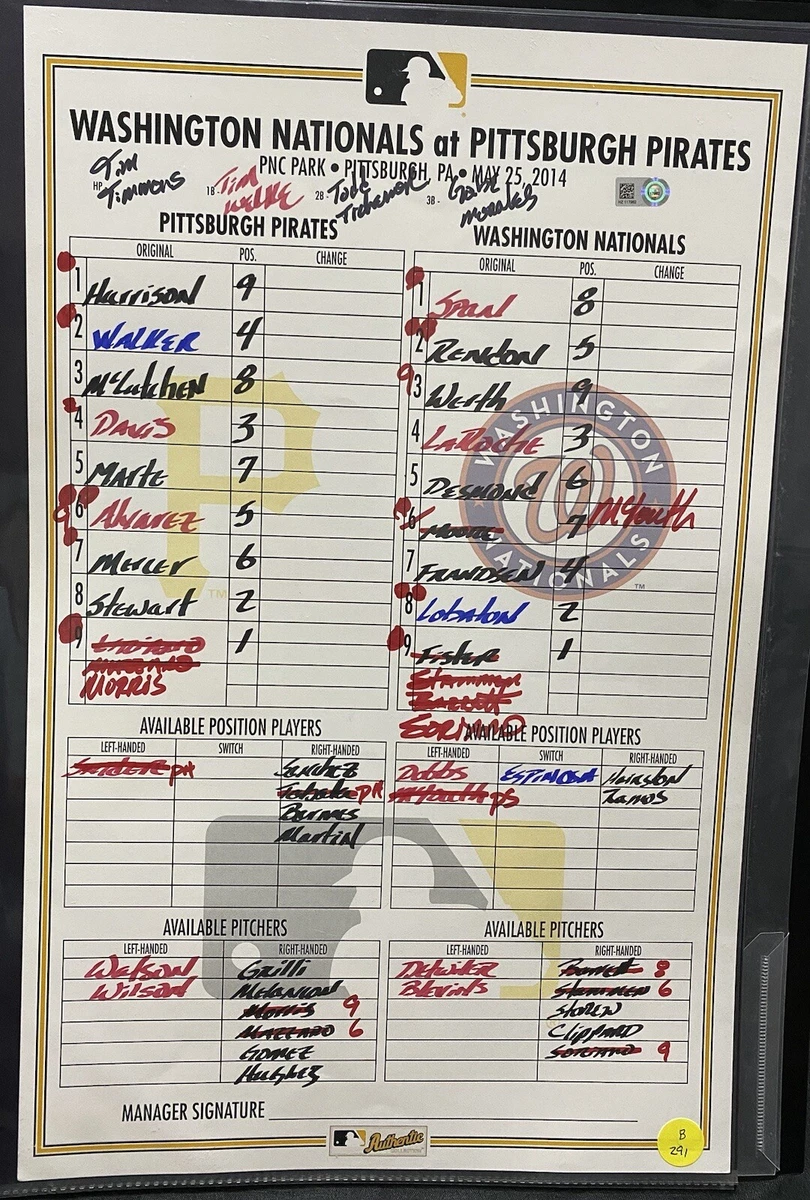 WASHINGTON NATIONALS at PITTSBURGH PIRATES
PNC PARK • PITTSBURGH, PA • MAY 25, 2014
HP Tim Timmons 1B - Tim Welke 2B - Todd Tichenor 3B - Gabe Morales
PITTSBURGH PIRATES
ORIGINAL POS. CHANGE
1 Harrison 9
2 WALKER 4
3 McCutchen 8
4 DAVIS 3
5 Marte 7
6 Alvarez 5
7 Mercer 6
8 Stewart 2
9 1
MORRIS
WASHINGTON NATIONALS
ORIGINAL POS. CHANGE
1 Span 8
2 RENDON 5
3 Werth 9
4 LaRoche 3
5 DESMOND 6
6 MOORE 7 McLouth
7 FRANDSEN 4
8 Lobaton 2
9 Fister 1
Stammen
Barrett
SORIANO
AVAILABLE POSITION PLAYERS
LEFT-HANDED SWITCH RIGHT-HANDED
Snider PH Sanchez
Tabata PH
Barnes
Martin
AVAILABLE POSITION PLAYERS
LEFT-HANDED SWITCH RIGHT-HANDED
Dobbs ESPINOSA Hairston
McLouth Ramos
AVAILABLE PITCHERS
LEFT-HANDED RIGHT-HANDED
Watson Grilli
Wilson Melancon
Morris 9
MAZZARO 6
GOMEZ
Hughes
AVAILABLE PITCHERS
LEFT-HANDED RIGHT-HANDED
Detwiler Barrett 8
Blevins Stammen 6
STOREN
CLIPPARD
SORIANO 9
MANAGER SIGNATURE
Authentic
COLLECTION
B
291
WASHINGTON NATIONALS
W
P
TM
TM